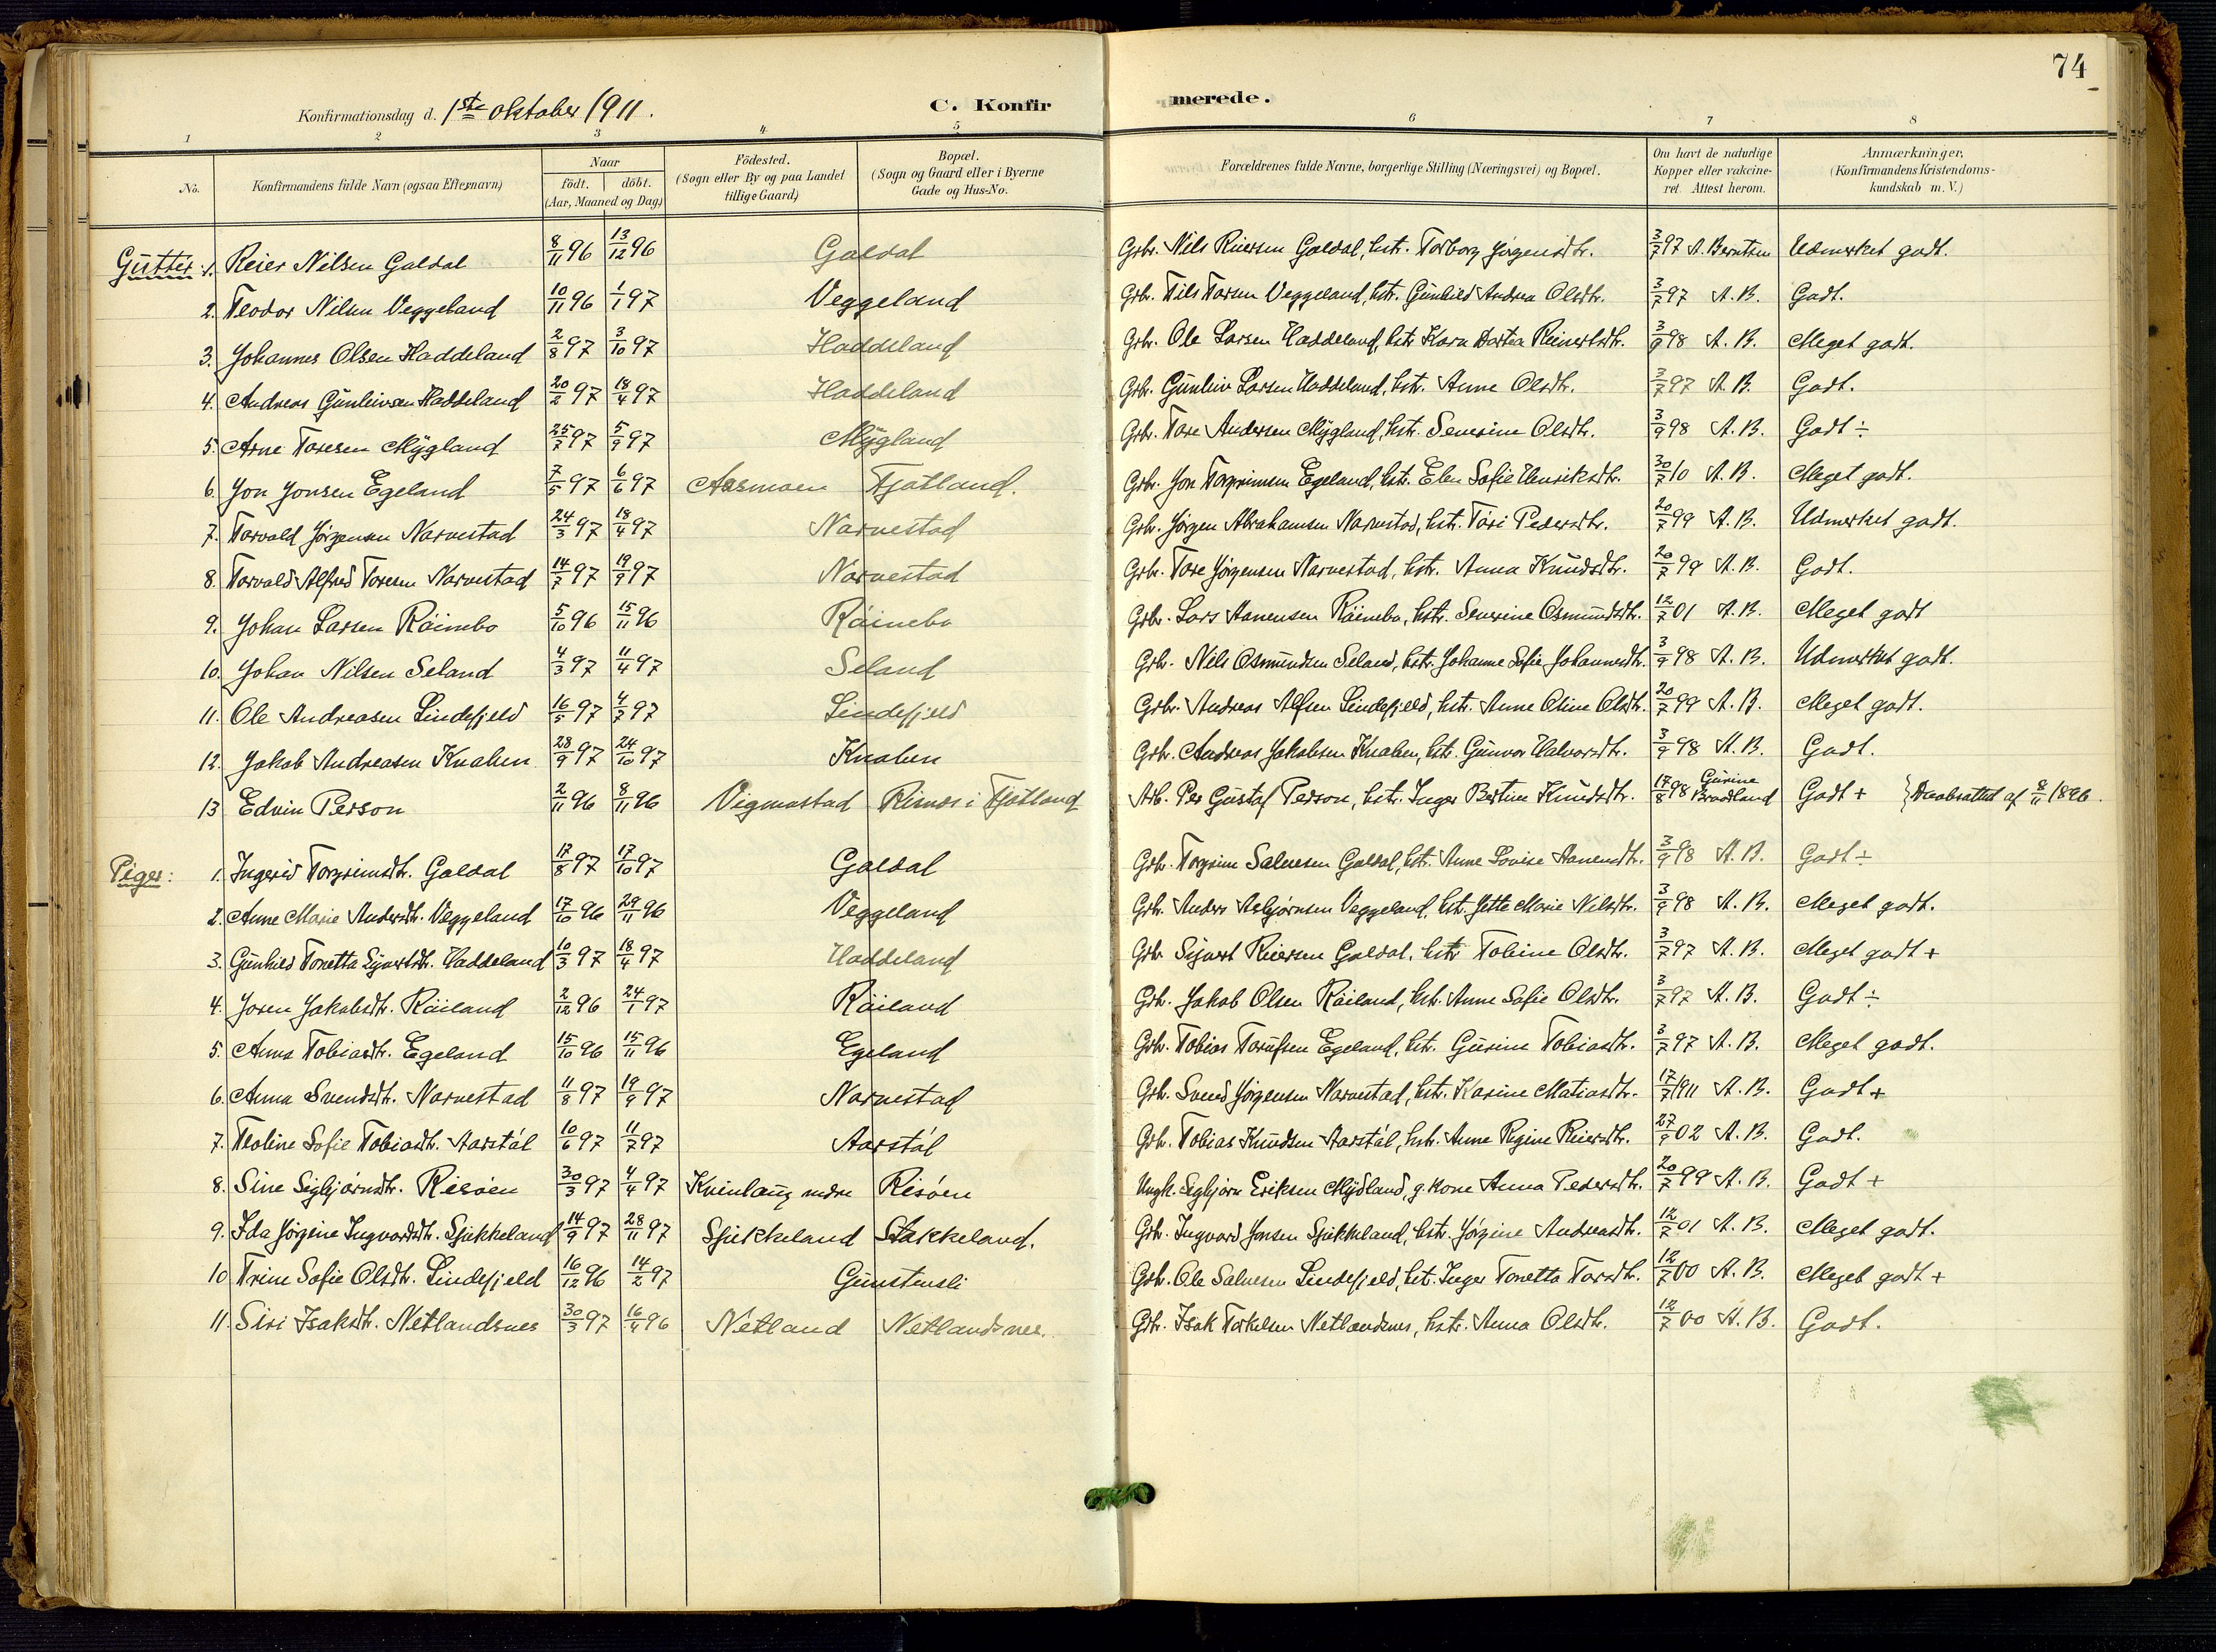 74
Konfirmationsdag d. 1ste oktober 1911. C. Konfirmerede.
1 2 3 4 5 6 7 8
No. Konfirmandens fulde Navn (ogsaa Efternavn) Naar födt. döbt. (Aar, Maaned og Dag) Födested. (Sogn eller By og paa Landet tillige Gaard) Bopæl. (Sogn og Gaard eller i Byerne Gade og Hus-No. Forældrenes fulde Navne, borgerlige Stilling (Næringsvei) og Bopæl. Om havt de naturlige Kopper eller vakcineret. Attest herom. Anmærkninger, (Konfirmandens Kristendomskundskab m. V.)
Gutter: 1. Reier Nilsen Galdal 8/11 96 13/12 96 Galdal Grbr. Nils Reiersen Galdal, hstr. Torborg Jørgensdtr. 3/7 97 A. Berntsen Udmerket godt.
2. Teodor Nilsen Veggeland 10/11 96 1/1 97 Veggeland Grbr. Nils Torsen Veggeland, hstr. Gunhild Andrea Olsdtr. 3/7 97 A. B. Godt.
3. Johannes Olsen Haddeland 2/8 97 3/10 97 Haddeland Grbr. Ole Larsen Haddeland, hstr. Karn Dortea Reinertsdtr. 3/9 98 A. B. Meget godt.
4. Andreas Gunleivsen Haddeland 20/2 97 18/4 97 Haddeland Grbr. Gunleiv Larsen Haddeland, hstr. Anne Olsdtr. 3/7 97 A. B. Godt.
5. Arne Toresen Mygland 25/7 97 5/9 97 Mygland Grbr. Tore Andersen Mygland, hstr. Severine Olsdtr. 3/9 98 A. B. Godt ÷
6. Jon Jonsen Egeland 7/5 97 6/6 97 Aasmoen Fjotland. Grbr. Jon Torgrimsen Egeland, hstr. Elen Sofie Henriksdtr. 30/7 10 A. B. Meget godt.
7. Torvald Jørgensen Narvestad 24/3 97 18/4 97 Narvestad Grbr. Jørgen Abrahamsen Narvestad, hstr. Tori Pedersdtr. 20/7 99 A. B. Udmerket godt.
8. Torvald Alfred Toresen Narvestad 14/7 97 19/9 97 Narvestad Grbr. Tore Jørgensen Narvestad, hstr. Anna Knudsdtr. 20/7 99 A. B. Godt.
9. Johan Larsen Röinebo 5/10 96 15/11 96 Röinebo Grbr. Lars Aanensen Röinebo, hstr. Severine Osmundsdtr. 12/7 01 A. B. Meget godt
10. Johan Nilsen Seland 4/3 97 11/4 97 Seland Grbr. Nils Osmundsen Seland, hstr. Johanne Sofie Johannesdtr. 3/9 98 A. B. Udmerket godt.
11. Ole Andreasen Lindefjeld 16/5 97 4/7 97 Lindefjeld Grbr. Andreas Alfsen Lindefjeld, hstr. Anne Oline Olsdtr. 20/7 99 A. B. Meget godt.
12. Jakob Andreasen Knaben 28/9 97 24/10 97 Knaben Grbr. Andreas Jakobsen Knaben, hstr. Gunvor Halvorsdtr. 3/9 98 A. B. Godt.
13 Edvin Person 2/11 96 8/11 96 Vigmostad Risnes i Fjotland Arb. Per Gustaf Person, hstr. Inger Bertine Knudsdtr. 17/8 98 Gurine Braadland Godt + } Daabsattest af 8/11 1896.
Piger: 1. Ingerid Torgrimsdtr. Galdal 17/8 97 17/10 97 Galdal Grbr. Torgrim Salvesen Galdal, hstr. Anne Lovise Aanensdtr. 3/9 98 A. B. Godt ÷
2. Anne Marie Andersdtr. Veggeland 17/10 96 29/11 96 Veggeland Grbr. Anders Asbjørnsen Veggeland, hstr. Jette Marie Nilsdtr. 3/9 98 A. B. Meget godt.
3. Gunhild Tonetta Sijvertsdtr. Haddeland 10/3 97 18/4 97 Haddeland Grbr. Sijvert Reiersen Galdal, hstr. Tobine Olsdtr. 3/7 97 A. B. Meget godt +
4. Josen Jakobsdtr. Röiland 2/12 96 24/1 97 Röiland Grbr. Jakob Olsen Röiland, hstr. Anne Sofie Olsdtr. 3/7 97 A. B. Godt ÷
5. Anna Tobiasdtr. Egeland 15/10 96 15/11 96 Egeland Grbr. Tobias Torufsen Egeland, hstr. Gurine Tobiasdtr. 3/7 97 A. B. Meget godt.
6. Anna Svendsdtr. Narvestad 11/8 97 19/9 97 Narvestad Grbr. Svend Jørgensen Narvestad, hstr. Karine Matiasdtr. 17/7 1911 A. B. Godt +
7. Teoline Sofie Tobiasdtr. Aarstøl 10/6 97 11/7 97 Aarstøl Grbr. Tobias Knudsen Aarstøl, hstr. Anne Regine Reiersdtr. 27/9 02 A. B. Godt.
8. Sine Sigbjørnsdtr. Risöen 30/3 97 4/4 97 Kvinlaug nedre Risöen Ungk. Sigbjørn Eriksen Mydland, g. kone Anna Pedersdtr. 20/7 99 A. B. Godt +
9. Ida Jørgine Ingvardsdtr. Sjukkeland 14/9 97 28/11 97 Sjukkeland Stakkeland. Grbr. Ingvard Jonsen Sjukkeland, hstr. Jørgine Andreasdtr. 12/7 01 A. B. Meget godt.
10 Trine Sofie Olsdtr. Lindefjeld 16/12 96 14/2 97 Gunstensli Grbr. Ole Salvesen Lindefjeld, hstr. Inger Tonetta Torsdtr. 12/7 00 A. B. Meget godt +
11. Siri Isaksdtr. Netlandsnes 30/3 97 16/4 96 Netland Netlandsnes. Grbr. Isak Torkelsen Netlandsnes, hstr. Anna Olsdtr. 12/7 00 A. B. Godt.